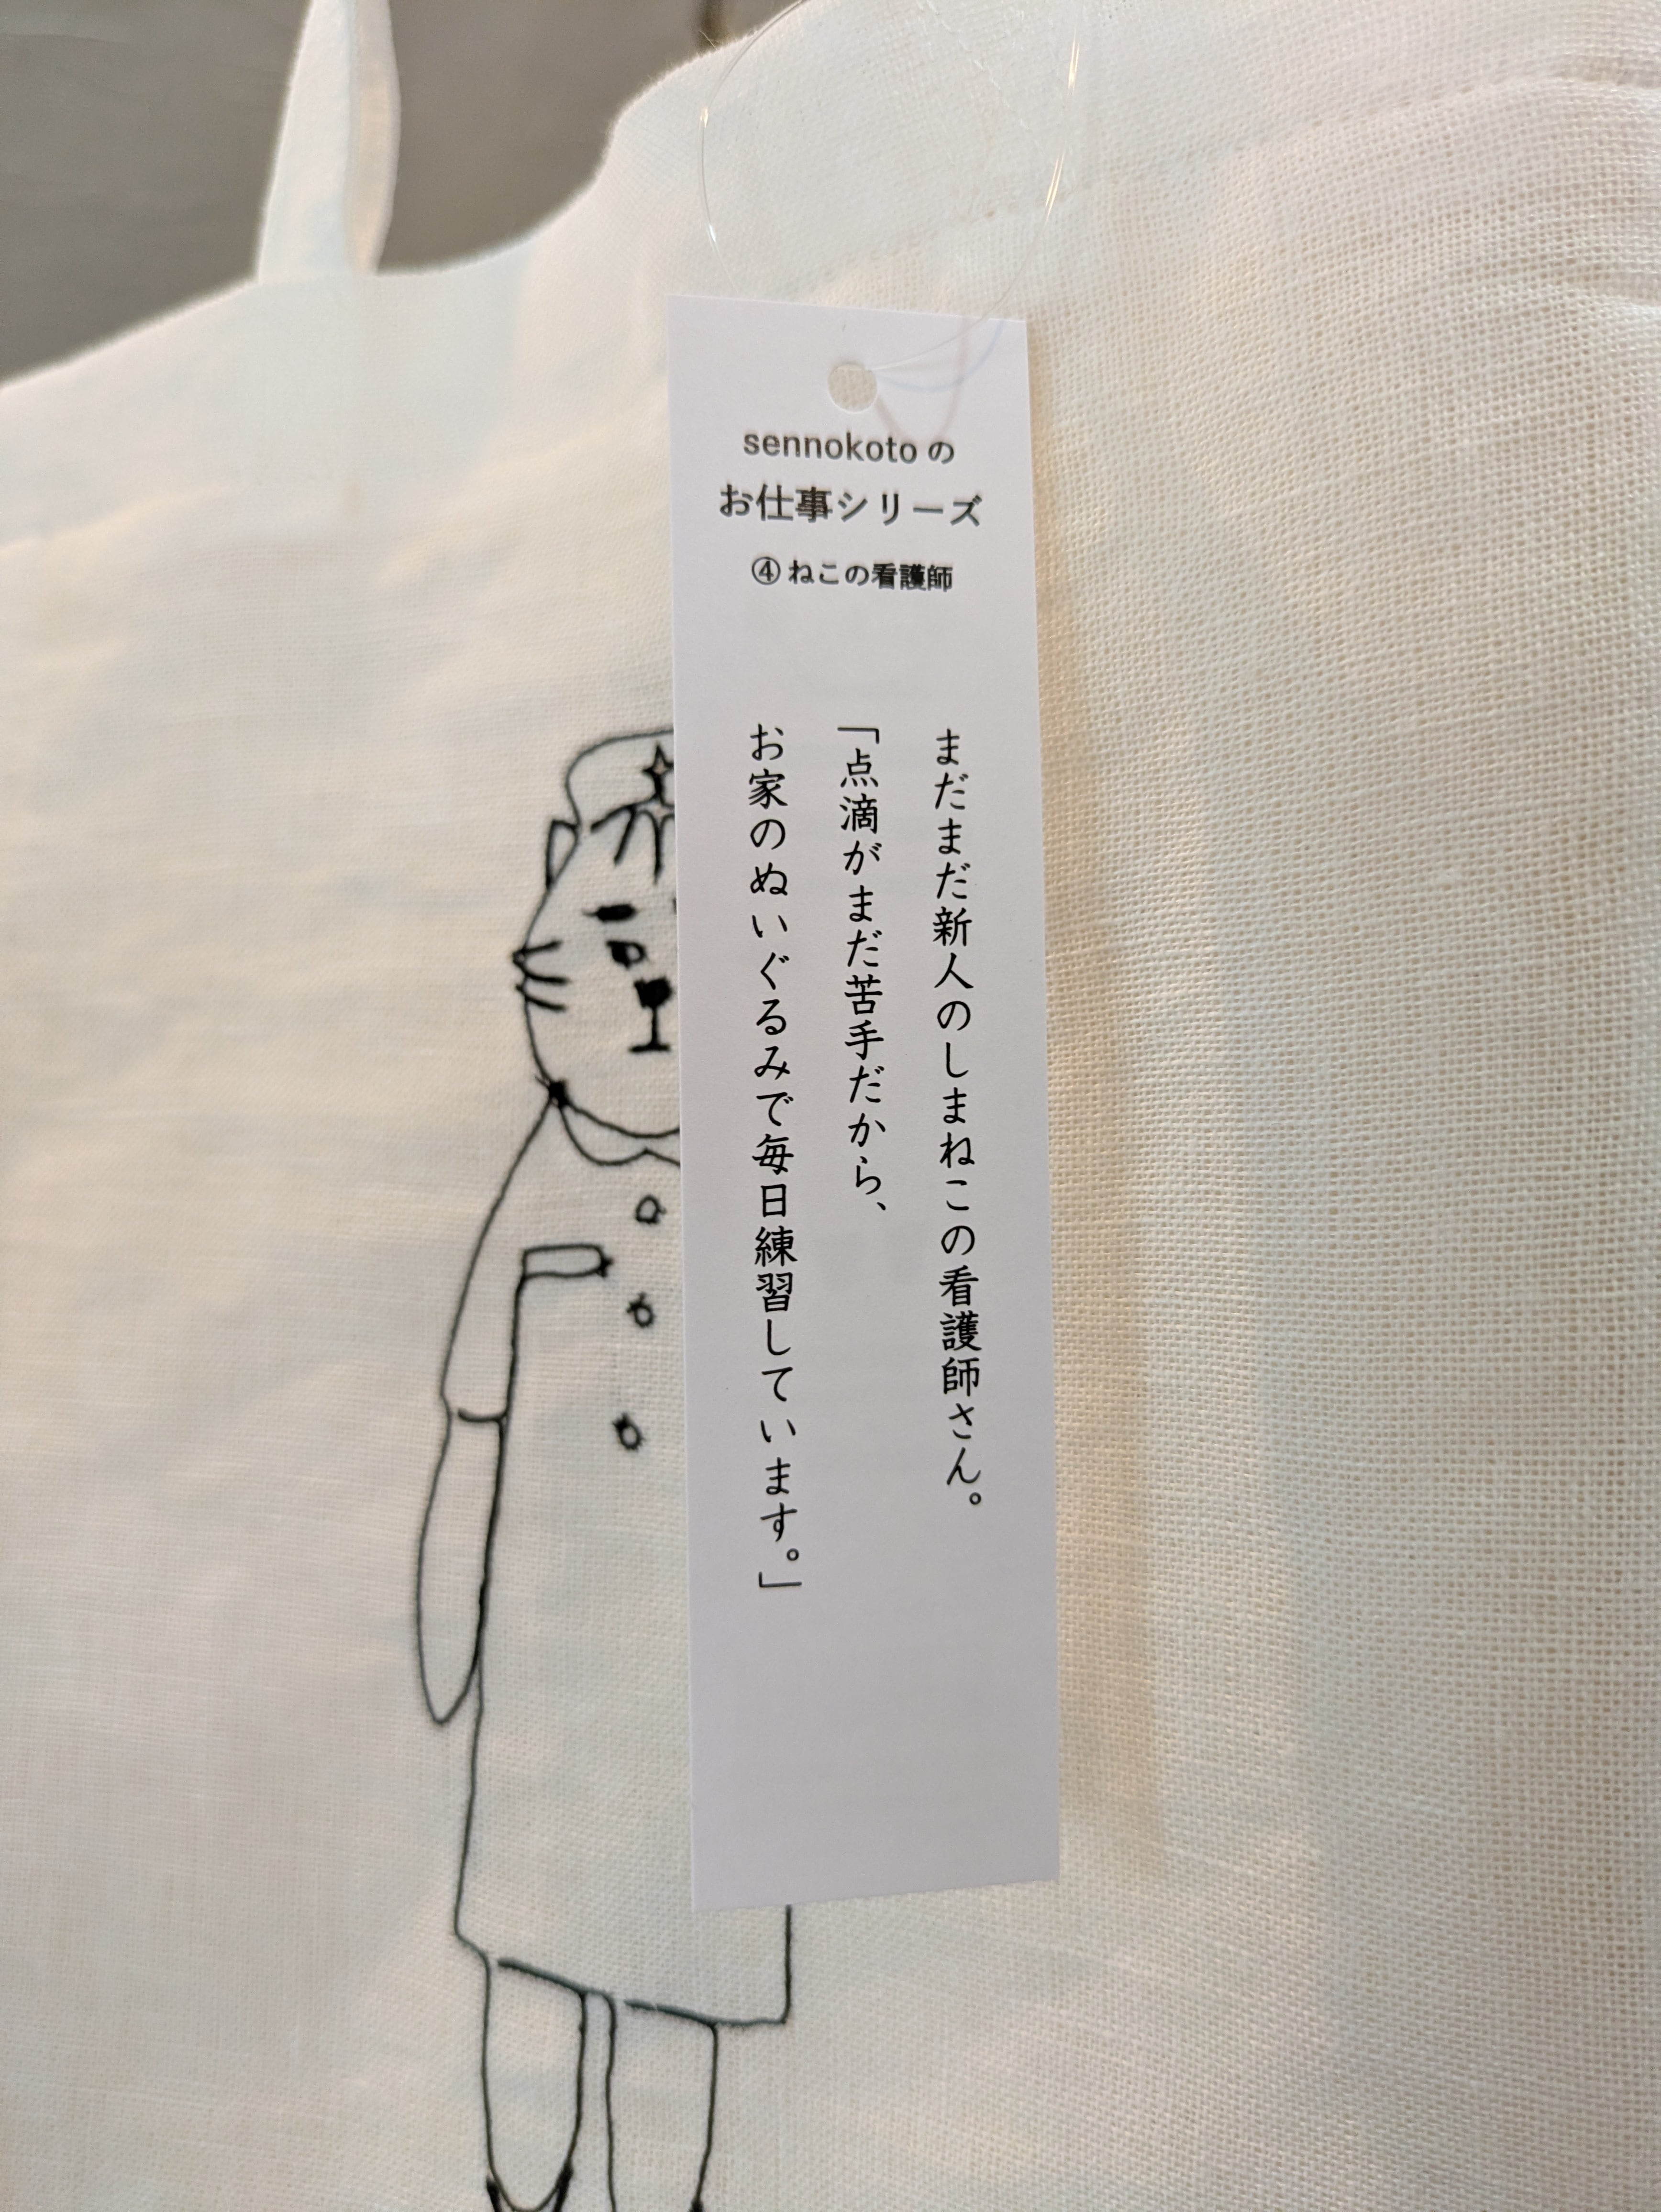 sennokotoの
お仕事シリーズ
④ねこの看護師
まだまだ新人のしまねこの看護師さん。
「点滴がまだ苦手だから、
お家のぬいぐるみで毎日練習しています。」